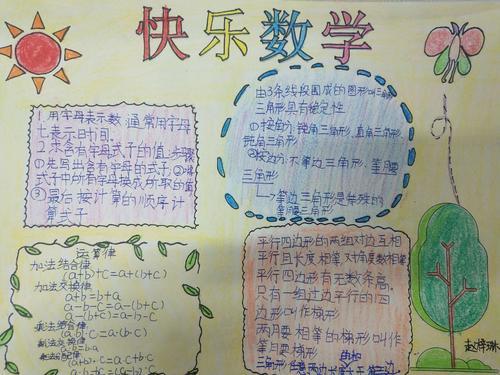 快乐数学
1.用字母表示数 通常用字母
七表示时间.
2.求含有字母式子的值步骤
①先写出含有字母的式子②
式子中所有字母换成所取的值
③最后按计算的顺序计
算式子
由3条线段围成的图形叫三角形
三角形具有稳定性
①按角分:锐角三角形,直角三角形
钝角三角形
②按边分:不等边三角形,等腰
三角形
等边三角形是特殊的
等腰三角形
运算律
加法结合律
(a+b)+c=a+(b+c)
加法交换律
a+b=b+a
a-b-c=a-(b+c)
a-(b+c)=a-b-c
乘法结合律
(a·b)·c=a·(b·c)
乘法交换律
a·b=b·a
乘法分配律
(a+b)·c=a·c+b·c
平行四边形的两组对边互相
平行且长度相等 对角度数相等
平行四边形有无数条高.
只有一组对边平行的四
边形叫作梯形
两腰相等的梯形叫作
等腰梯形
赵梓琳